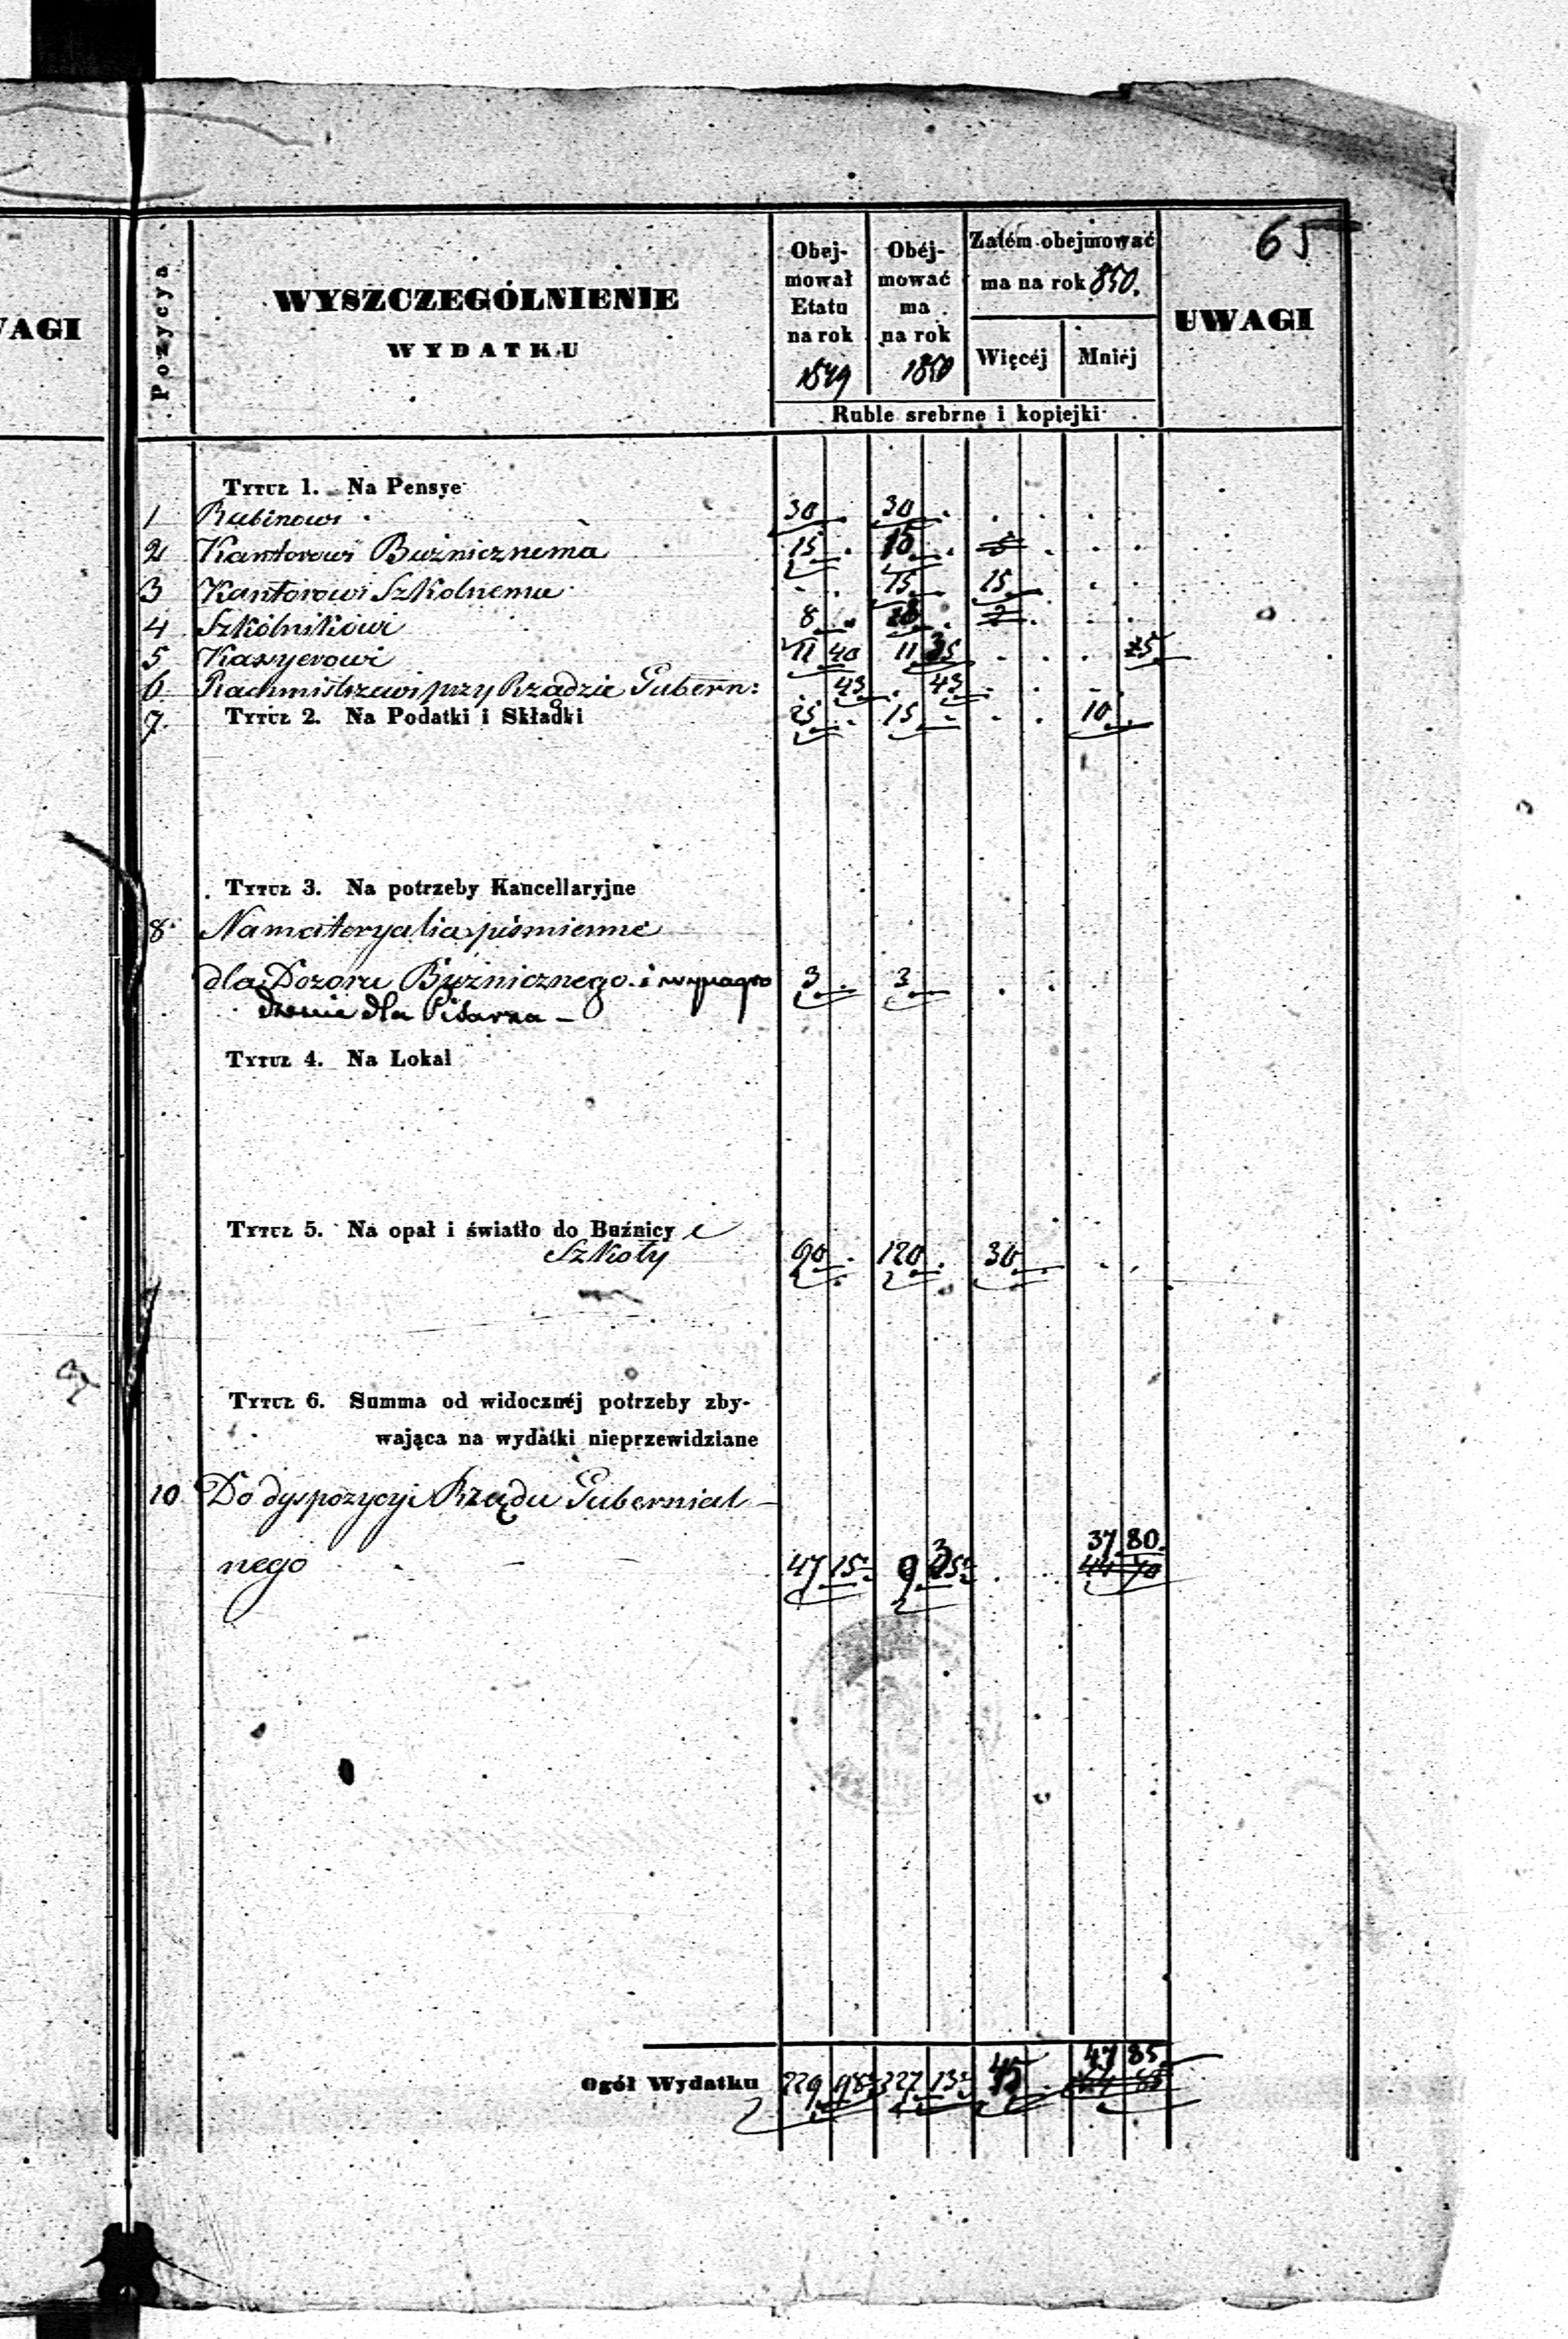 65
WAGI
Pozycya
WYSZCZEGÓLNIENIE
WYDATKU
Obej-
mował
Etatu
na rok
1849
Obéj-
mować
ma
na rok
1850
Zatém obejmować
ma na rok 850.
Więcéj
Mniéj
UWAGI
Ruble srebrne i kopiejki
Tytuł 1. Na Pensye
1 Rabinowi . 30 . 30 .
2 Kantorowi Buźnicznemu 15 . 15 . 5 .
3 Kantorowi Szkolnemu 15 . 15 .
4 Szkólnikowi 8 .
5 Kassyerowi 11 40 11 35 . . . 25
6 Rachmistrzowi przy Rządzie Gubern: . 43 . 43
7. Tytuł 2. Na Podatki i Składki 25 . 15 . . . 10 .
Tytuł 3. Na potrzeby Kancellaryjne
8. Na materyalia piśmienne
dla Dozoru Buźnicznego i wynagro 3 . 3 .
dzenie dla Pisarza –
Tytuł 4. Na Lokal
Tytuł 5. Na opał i światło do Buźnicy i
Szkoły 90 . 120 . 30 .
Tytuł 6. Summa od widocznéj potrzeby zby-
wająca na wydatki nieprzewidziane
10 Do dyspozycyi Rządu Gubernial-
37 80.
nego 47 15 9 35 44 70
47 85.
Ogół Wydatku 229 98 227 13 45 .